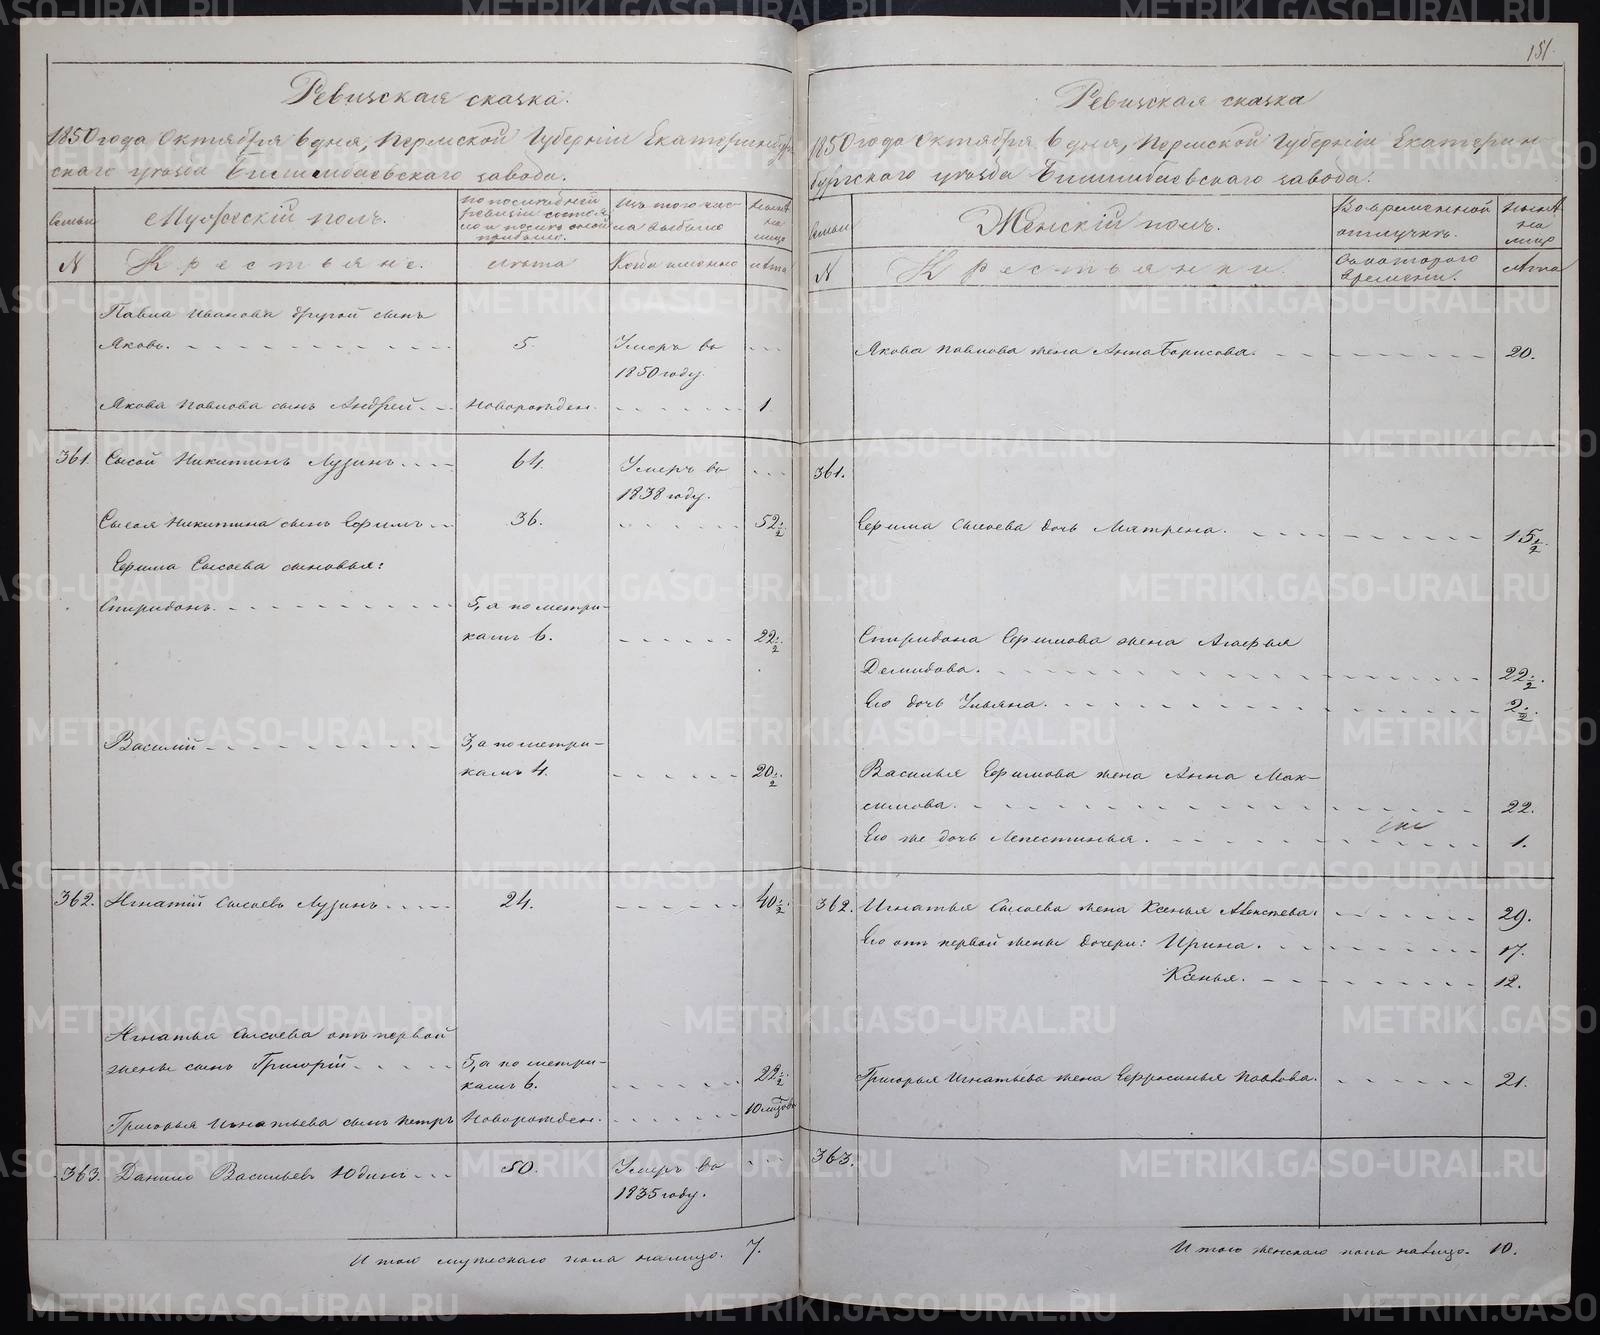 Ревизская сказка.
1850 года Октября 6 дня, Пермской Губерніи Екатеринбург-
скаго уѣзда Билимбаевскаго завода.
Семьи
Мужескій полъ.
По послѣдней ревизіи состояло и послѣ оной прибыло.
Изъ того числа выбыло
Нынѣ на лицо
N
Крестьяне.
Лѣта
Когда именно
Лѣта
Павла Иванова другой сынъ
Яковъ.
5.
Умеръ въ
1850 году.
Якова Павлова сынъ Андрей
Новорожден.
1
361.
Сысой Никитинъ Лузинъ
64.
Умеръ въ
1838 году.
Сысоя Никитина сынъ Ефимъ
36.
52½.
Ефима Сысоева сыновья:
Спиридонъ.
5, а по метри-
камъ 6.
22½.
Василій
3, а по метри-
камъ 4.
20½.
362.
Игнатій Сысоевъ Лузинъ
24.
40½.
Игнатья Сысоева отъ первой
жены сынъ Григорій
5, а по метри-
камъ 6.
22½.
Григорья Игнатьева сынъ Петръ
Новорожден.
363.
Данило Васильевъ Юдинъ
50.
Умеръ въ
1835 году.
Итого мужескаго пола налицо. 7.
151.
Ревизская сказка
1850 года Октября 6 дня, Пермской Губерніи Екатерин-
бургскаго уѣзда Билимбаевскаго завода.
Семьи
Женскій полъ.
Во временной отлучкѣ.
Нынѣ на лицо
N
Крестьянки.
Съ котораго времени.
Лѣта
Якова Павлова жена Анна Борисова.
20.
361.
Ефима Сысоева дочь Матрена.
15½.
Спиридона Ефимова жена Агафья
Демидова.
22½.
Его дочь Ульяна.
2½.
Василья Ефимова жена Анна Мак-
симова.
22.
Его же дочь Лепестинья.
1.
362.
Игнатья Сысоева жена Ксенья Алексѣева.
29.
Его отъ первой жены дочери: Ирина.
17.
Ксенья.
12.
Григорья Игнатьева жена Ефросинья Павлова.
21.
363.
Итого женскаго пола налицо. 10.
METRIKI.GASO-URAL.RU